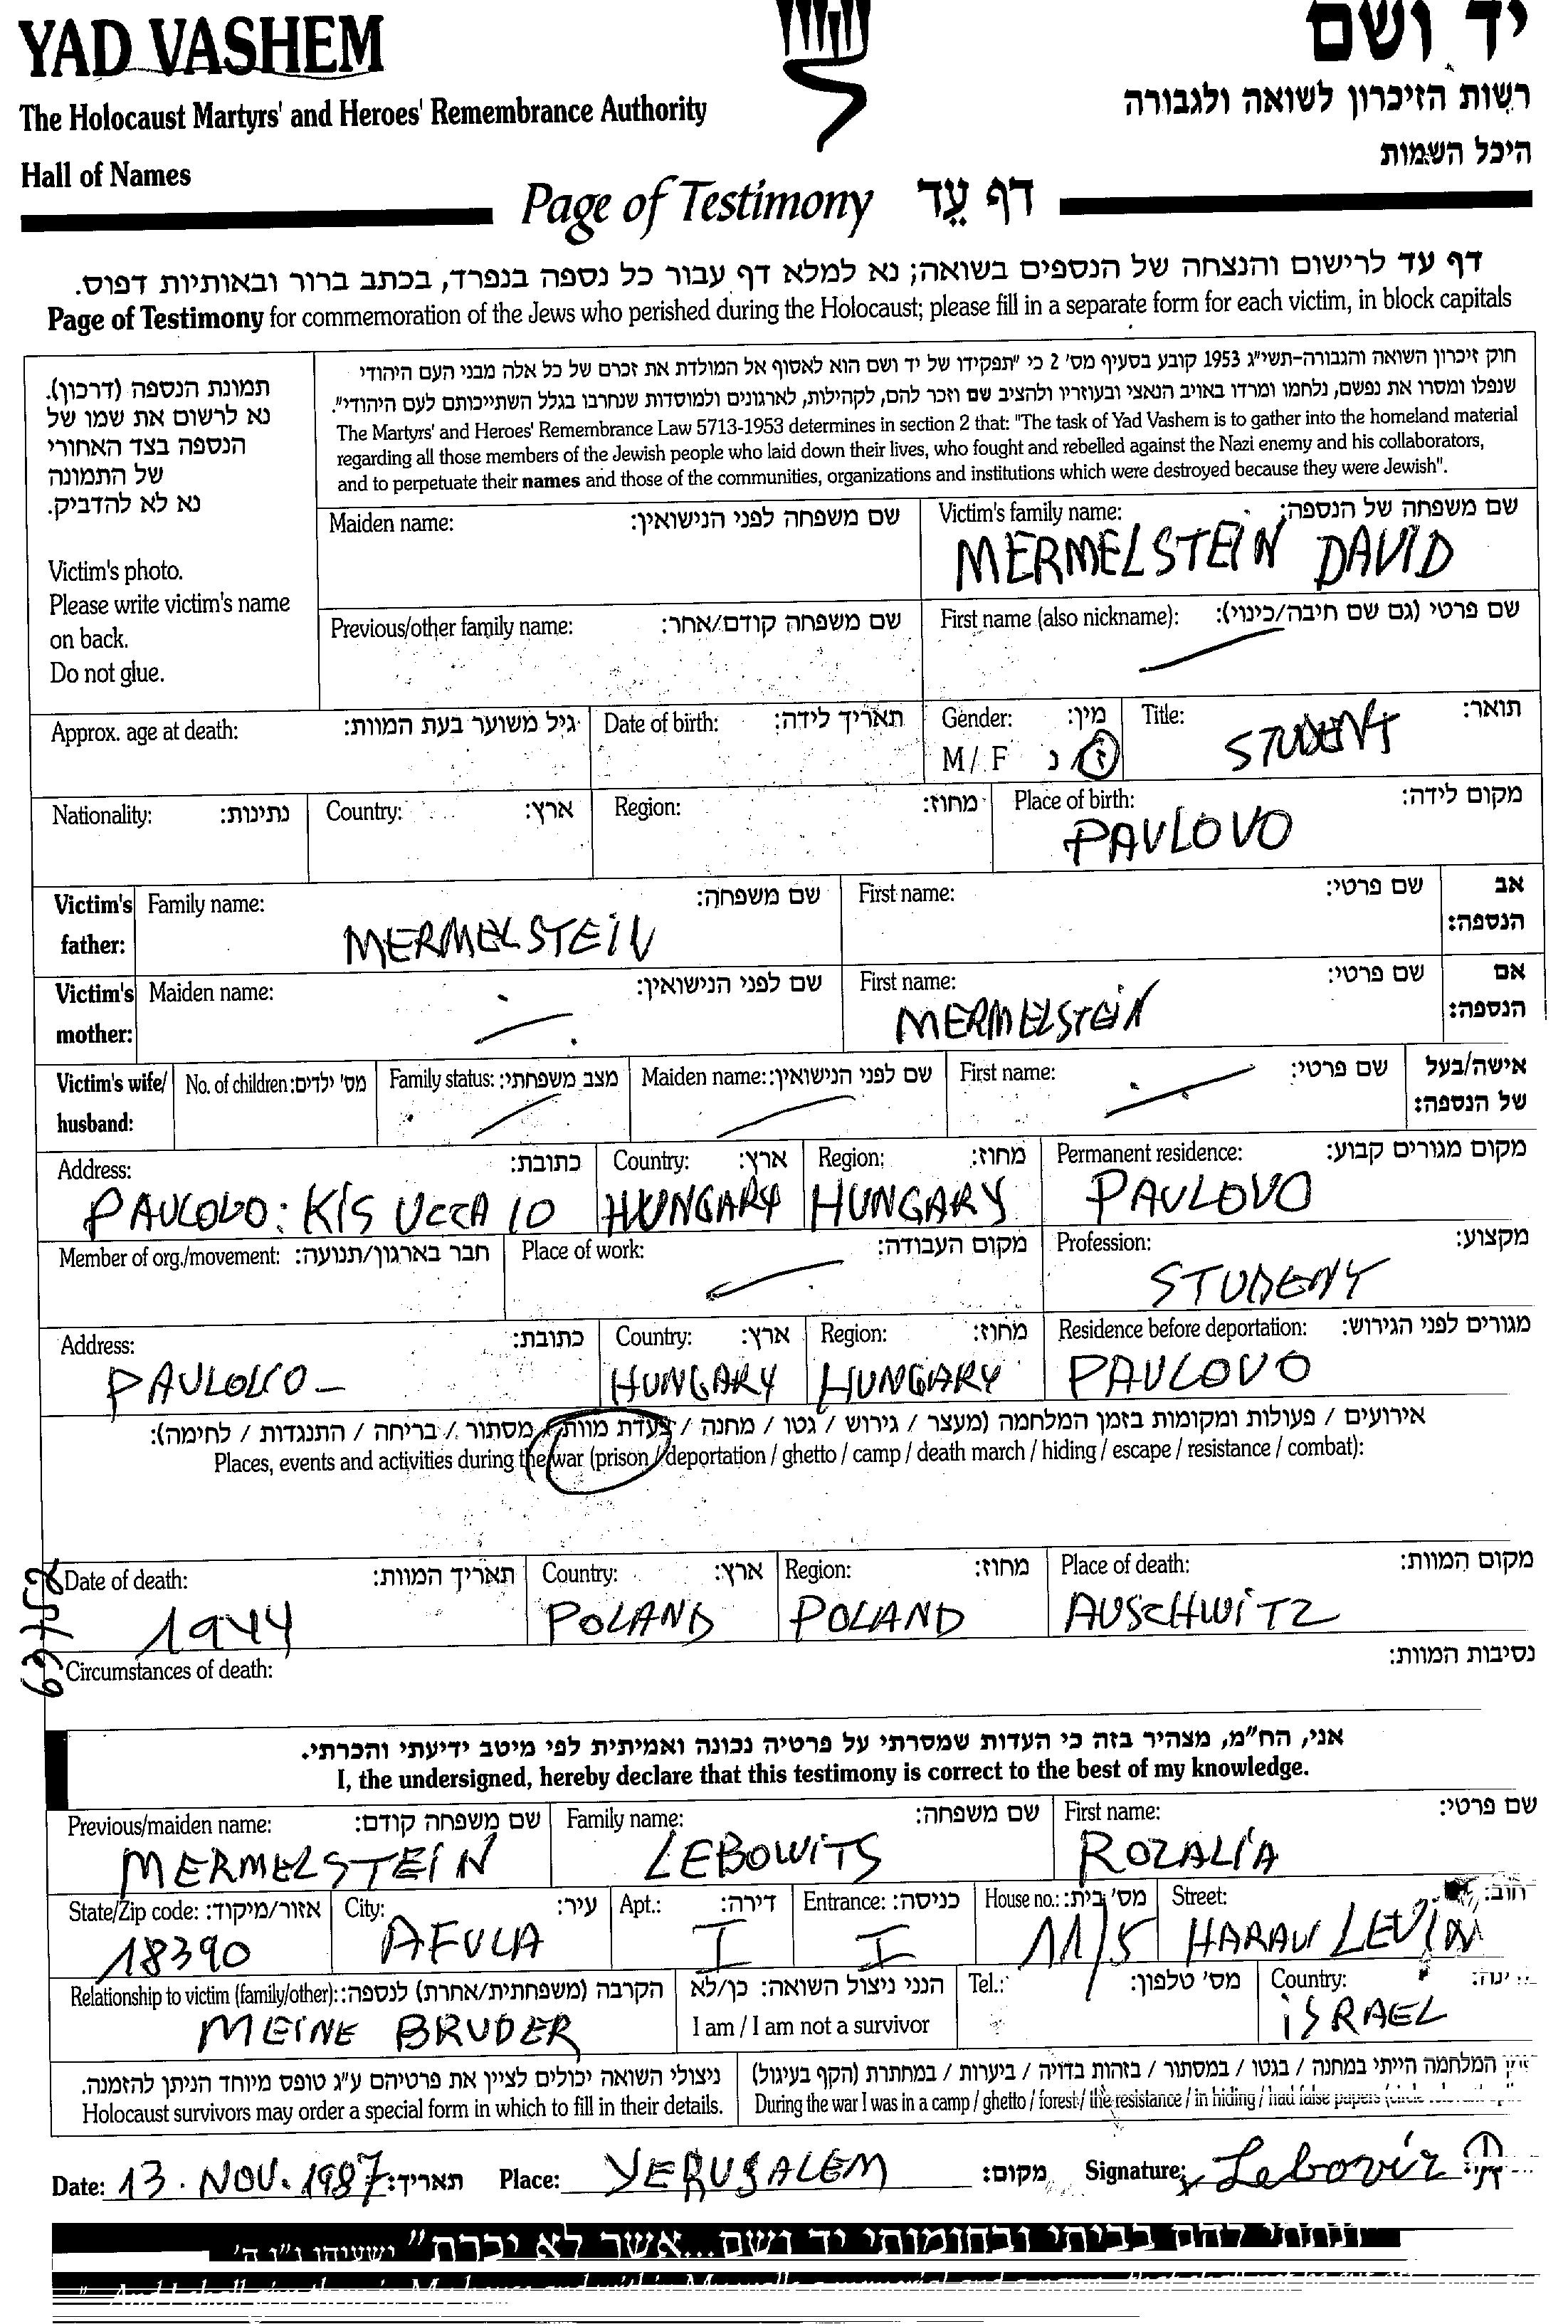 YAD VASHEM
יד ושם
The Holocaust Martyrs' and Heroes' Remembrance Authority
רשות הזיכרון לשואה ולגבורה
Hall of Names
היכל השמות
Page of Testimony דף עֵד
דף עד לרישום והנצחה של הנספים בשואה; נא למלא דף עבור כל נספה בנפרד, בכתב ברור ובאותיות דפוס.
Page of Testimony for commemoration of the Jews who perished during the Holocaust; please fill in a separate form for each victim, in block capitals
תמונת הנספה (דרכון).
נא לרשום את שמו של
הנספה בצד האחורי
של התמונה
נא לא להדביק.
Victim's photo.
Please write victim's name
on back.
Do not glue.
חוק זיכרון השואה והגבורה-תשי"ג 1953 קובע בסעיף מס' 2 כי "תפקידו של יד ושם הוא לאסוף אל המולדת את זכרם של כל אלה מבני העם היהודי
שנפלו ומסרו את נפשם, נלחמו ומרדו באויב הנאצי ובעוזריו ולהציב שם וזכר להם, לקהילות, לארגונים ולמוסדות שנחרבו בגלל השתייכותם לעם היהודי".
The Martyrs' and Heroes' Remembrance Law 5713-1953 determines in section 2 that: "The task of Yad Vashem is to gather into the homeland material
regarding all those members of the Jewish people who laid down their lives, who fought and rebelled against the Nazi enemy and his collaborators,
and to perpetuate their names and those of the communities, organizations and institutions which were destroyed because they were Jewish".
Maiden name: שם משפחה לפני הנישואין: Victim's family name: שם משפחה של הנספה:
MERMELSTEIN DAVID
Previous/other family name: שם משפחה קודם/אחר: First name (also nickname): שם פרטי (גם שם חיבה/כינוי):
Approx. age at death: גיל משוער בעת המוות: Date of birth: תאריך לידה: Gender: מין: Title: תואר:
M / F ז / נ STUDENT
Nationality: נתינות: Country: ארץ: Region: מחוז: Place of birth: מקום לידה:
PAVLOVO
Victim's father: Family name: שם משפחה: First name: שם פרטי: אב הנספה:
MERMELSTEIN
Victim's mother: Maiden name: שם לפני הנישואין: First name: שם פרטי: אם הנספה:
MERMELSTEIN
Victim's wife/ husband: No. of children: מס' ילדים: Family status: מצב משפחתי: Maiden name: שם לפני הנישואין: First name: שם פרטי: אישה/בעל של הנספה:
Address: כתובת: Country: ארץ: Region: מחוז: Permanent residence: מקום מגורים קבוע:
PAVLOVO: KIS UCCA 10 HUNGARY HUNGARY PAVLOVO
Member of org./movement: חבר בארגון/תנועה: Place of work: מקום העבודה: Profession: מקצוע:
STUDENT
Address: כתובת: Country: ארץ: Region: מחוז: Residence before deportation: מגורים לפני הגירוש:
PAVLOVO - HUNGARY HUNGARY PAVLOVO
אירועים / פעולות ומקומות בזמן המלחמה (מעצר / גירוש / גטו / מחנה / צעדת מוות / מסתור / בריחה / התנגדות / לחימה):
Places, events and activities during the war (prison / deportation / ghetto / camp / death march / hiding / escape / resistance / combat):
Date of death: תאריך המוות: Country: ארץ: Region: מחוז: Place of death: מקום המוות:
1944 POLAND POLAND AUSCHWITZ
Circumstances of death: נסיבות המוות:
אני, הח"מ, מצהיר בזה כי העדות שמסרתי על פרטיה נכונה ואמיתית לפי מיטב ידיעתי והכרתי.
I, the undersigned, hereby declare that this testimony is correct to the best of my knowledge.
Previous/maiden name: שם משפחה קודם: Family name: שם משפחה: First name: שם פרטי:
MERMELSTEIN LEBOWITS ROZALIA
State/Zip code: אזור/מיקוד: City: עיר: Apt.: דירה: Entrance: כניסה: House no.: מס' בית: Street:
18390 AFULA I I 11/5 HARAV LEVIN
Relationship to victim (family/other): הקרבה (משפחתית/אחרת) לנספה: הנני ניצול השואה: כן/לא Tel.: מס' טלפון: Country:
MEINE BRUDER I am / I am not a survivor ISRAEL
ניצולי השואה יכולים לציין את פרטיהם ע"ג טופס מיוחד הניתן להזמנה.
Holocaust survivors may order a special form in which to fill in their details.
המלחמה הייתי במחנה / בגטו / במסתור / בזהות בדויה / ביערות / במחתרת (הקף בעיגול)
During the war I was in a camp / ghetto / forest / the resistance / in hiding / had false papers
Date: 13. NOV. 1987 תאריך: Place: YERUSALEM מקום: Signature:
ונתתי להם בביתי ובחומותי יד ושם...אשר לא יכרת" ישעיהו נ"ו ה'